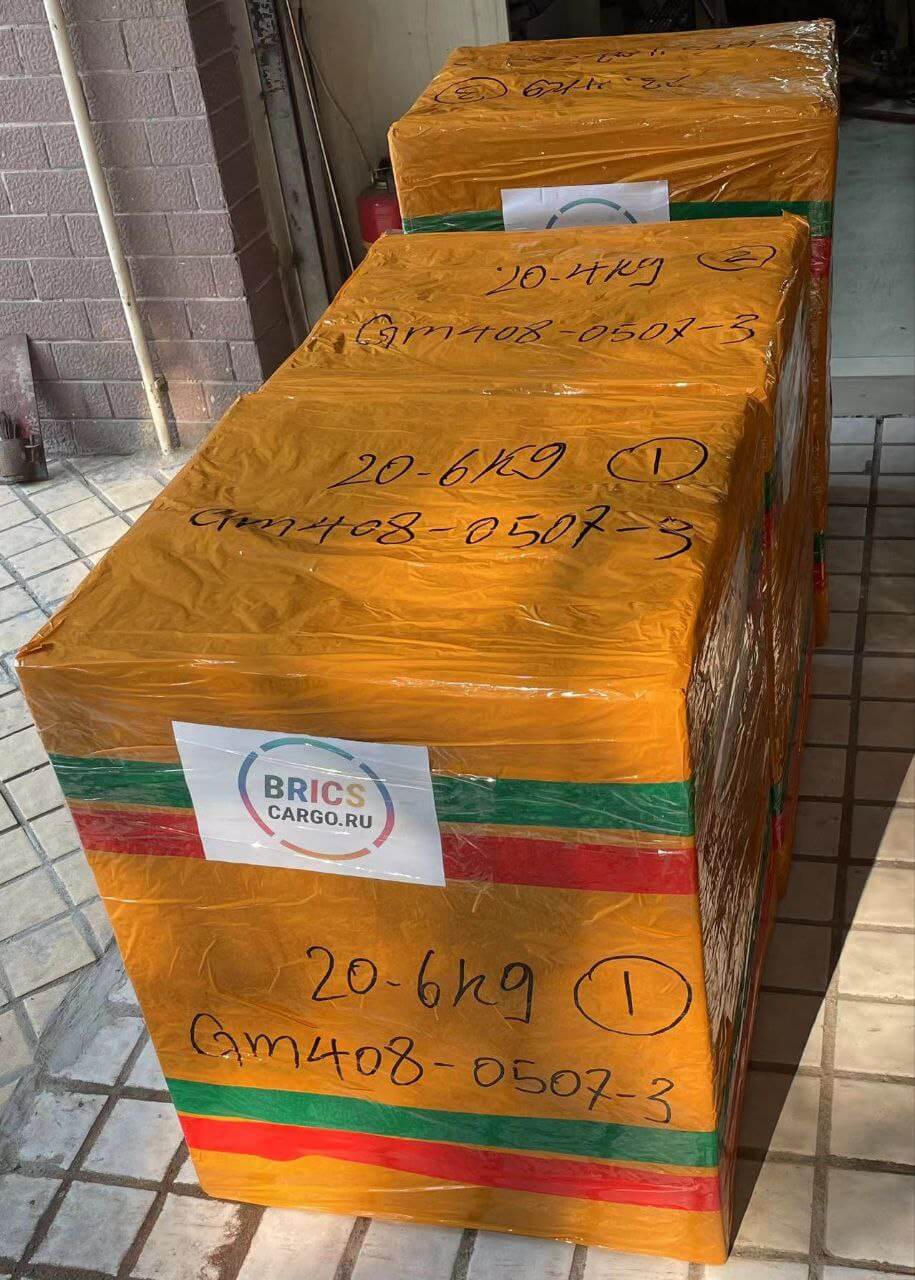 ③
20-4Kg ②
Gm408-0507-3
20-6Kg ①
Gm408-0507-3
BRICS
CARGO.RU
20-6Kg ①
Gm408-0507-3